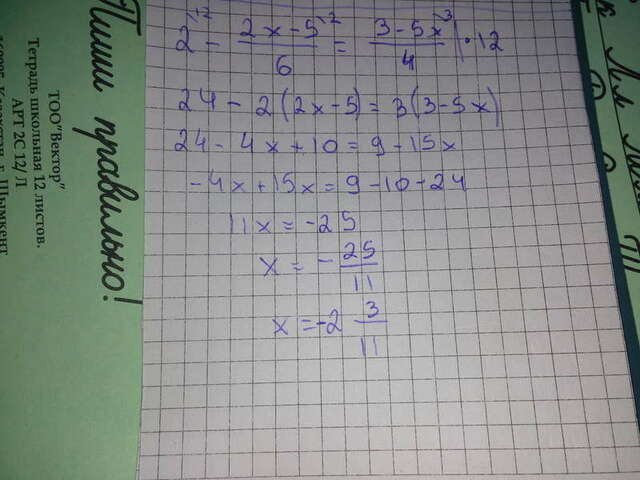 к Лл М
2 - 2x-5/6 = 3-5x/4 | · 12
24 - 2(2x-5) = 3(3-5x)
24 - 4x + 10 = 9 - 15x
-4x + 15x = 9 - 10 - 24
11x = -25
x = - 25/11
x = -2 3/11
Пиши правильно!
ТОО"Вектор"
Тетрадь школьная 12 листов.
АРТ 2С 12/ Л
Казахстан, г. Шымкент